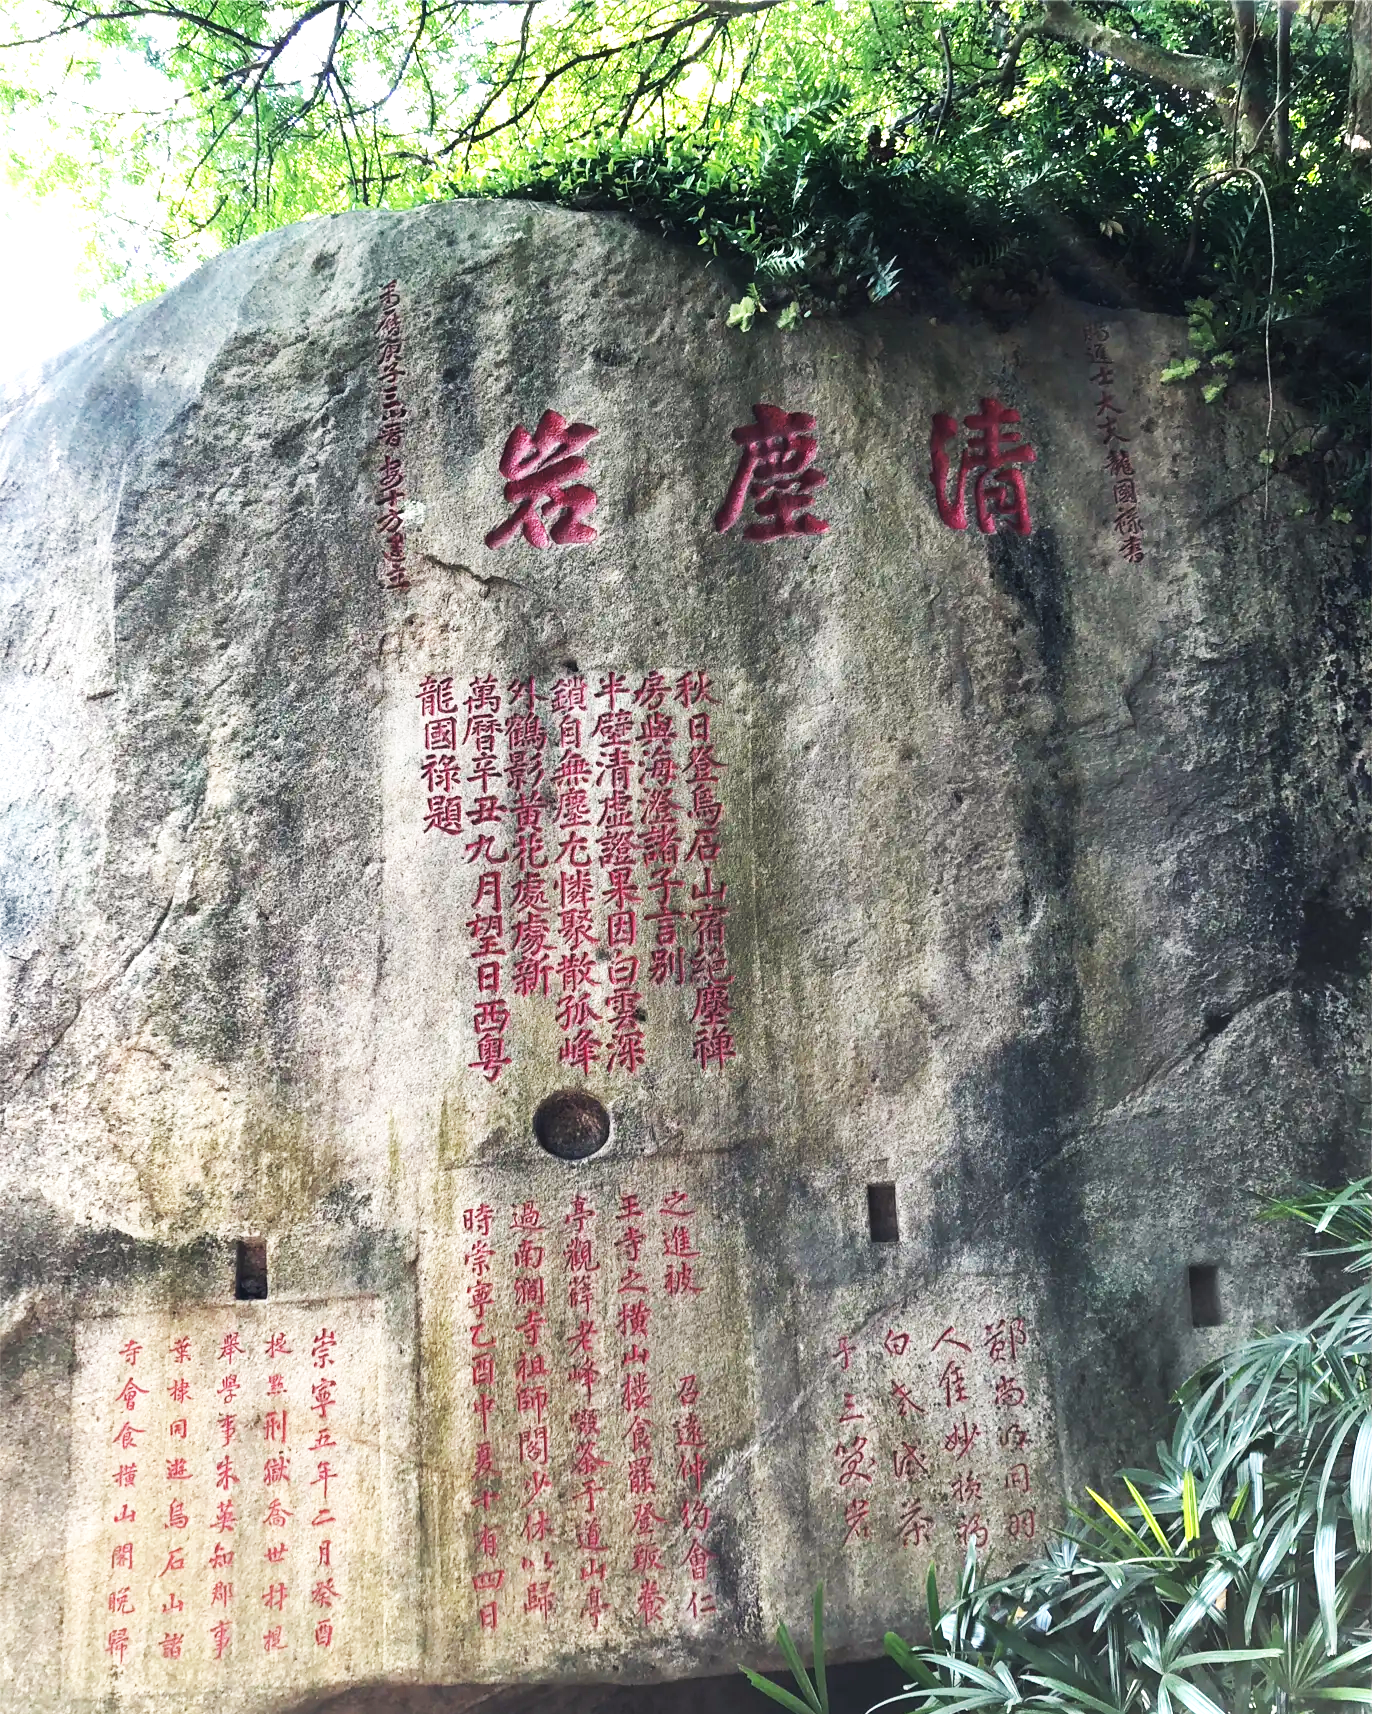 清塵岩
賜進士大夫龍國祿書
萬曆庚子三山
十方
秋日登烏石山宿絕塵禅
房與海澄諸子言别
半壁清虛證果因白雲深
鎖自無塵尤憐聚散孤峰
外鶴影黃花處處新
萬曆辛丑九月望日西粵
龍國祿題
之進被 召遠仲約會仁
王寺之橫山樓食罷登瞰養
亭觀薛老峰啜茶于道山亭
過南澗寺祖師閣少休以歸
時崇寧乙酉中夏十有四日
鄭尚同羽
人隹妙
白茶
于三笑岩
崇寧五年二月癸酉
提點刑獄喬世材提
舉學事朱英知郡事
葉棣同遊烏石山諸
寺會食橫山閣晚歸